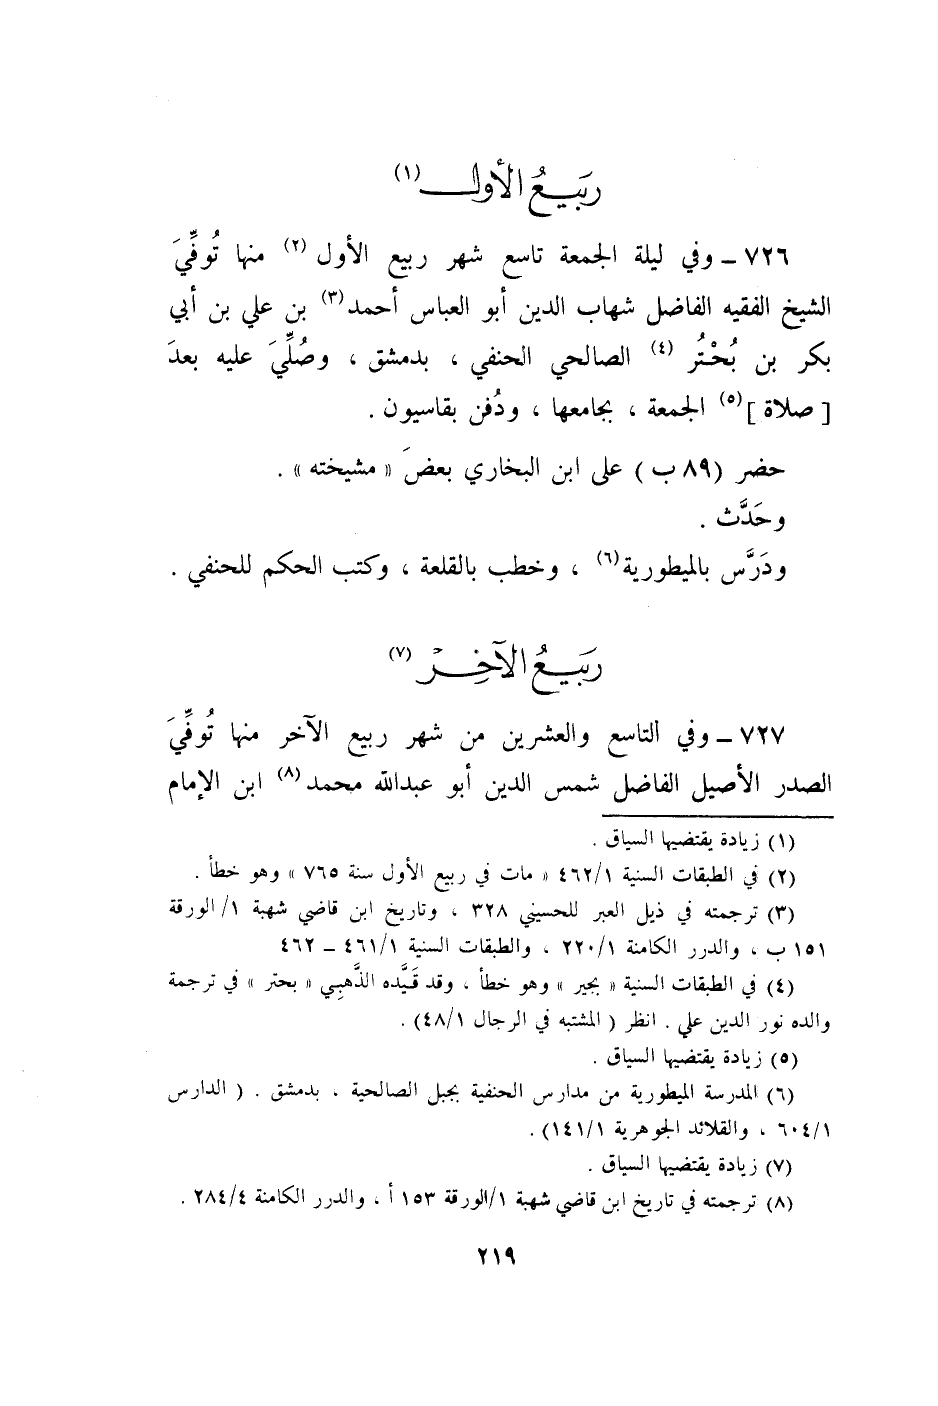 ربيعُ الأول (١)
٧٢٦ ـ وفي ليلة الجمعة تاسع شهر ربيع الأول (٢) منها تُوفِّيَ
الشيخ الفقيه الفاضل شهاب الدين أبو العباس أحمد(٣) بن علي بن أبي
بكر بن بُحْتُر (٤) الصالحي الحنفي ، بدمشق ، وصُلِّيَ عليه بعدَ
[ صلاة ](٥) الجمعة ، بجامعها ، ودُفن بقاسيون .
حضر (٨٩ ب ) على ابن البخاري بعضَ « مشيخته » .
وحَدَّث .
ودَرَّس بالميطورية(٦) ، وخطب بالقلعة ، وكتب الحكم للحنفي .
ربيعُ الآخِر (٧)
٧٢٧ ـ وفي التاسع والعشرين من شهر ربيع الآخر منها تُوفِّيَ
الصدر الأصيل الفاضل شمس الدين أبو عبدالله محمد(٨) ابن الإمام
(١) زيادة يقتضيها السياق .
(٢) في الطبقات السنية ٤٦٢/١ « مات في ربيع الأول سنة ٧٦٥ » وهو خطأ .
(٣) ترجمته في ذيل العبر للحسيني ٣٢٨ ، وتاريخ ابن قاضي شهبة ١/ الورقة
١٥١ ب ، والدرر الكامنة ٢٢٠/١ ، والطبقات السنية ٤٦١/١ ـ ٤٦٢
(٤) في الطبقات السنية « بجير » وهو خطأ ، وقد قَيَّده الذَّهبي « بحتر » في ترجمة
والده نور الدين علي . انظر ( المشتبه في الرجال ٤٨/١) .
(٥) زيادة يقتضيها السياق .
(٦) المدرسة الميطورية من مدارس الحنفية بجبل الصالحية ، بدمشق . ( الدارس
٦٠٤/١ ، والقلائد الجوهرية ١٤١/١) .
(٧) زيادة يقتضيها السياق .
(٨) ترجمته في تاريخ ابن قاضي شهبة ١/الورقة ١٥٣ أ ، والدرر الكامنة ٢٨٤/٤ .
٢١٩